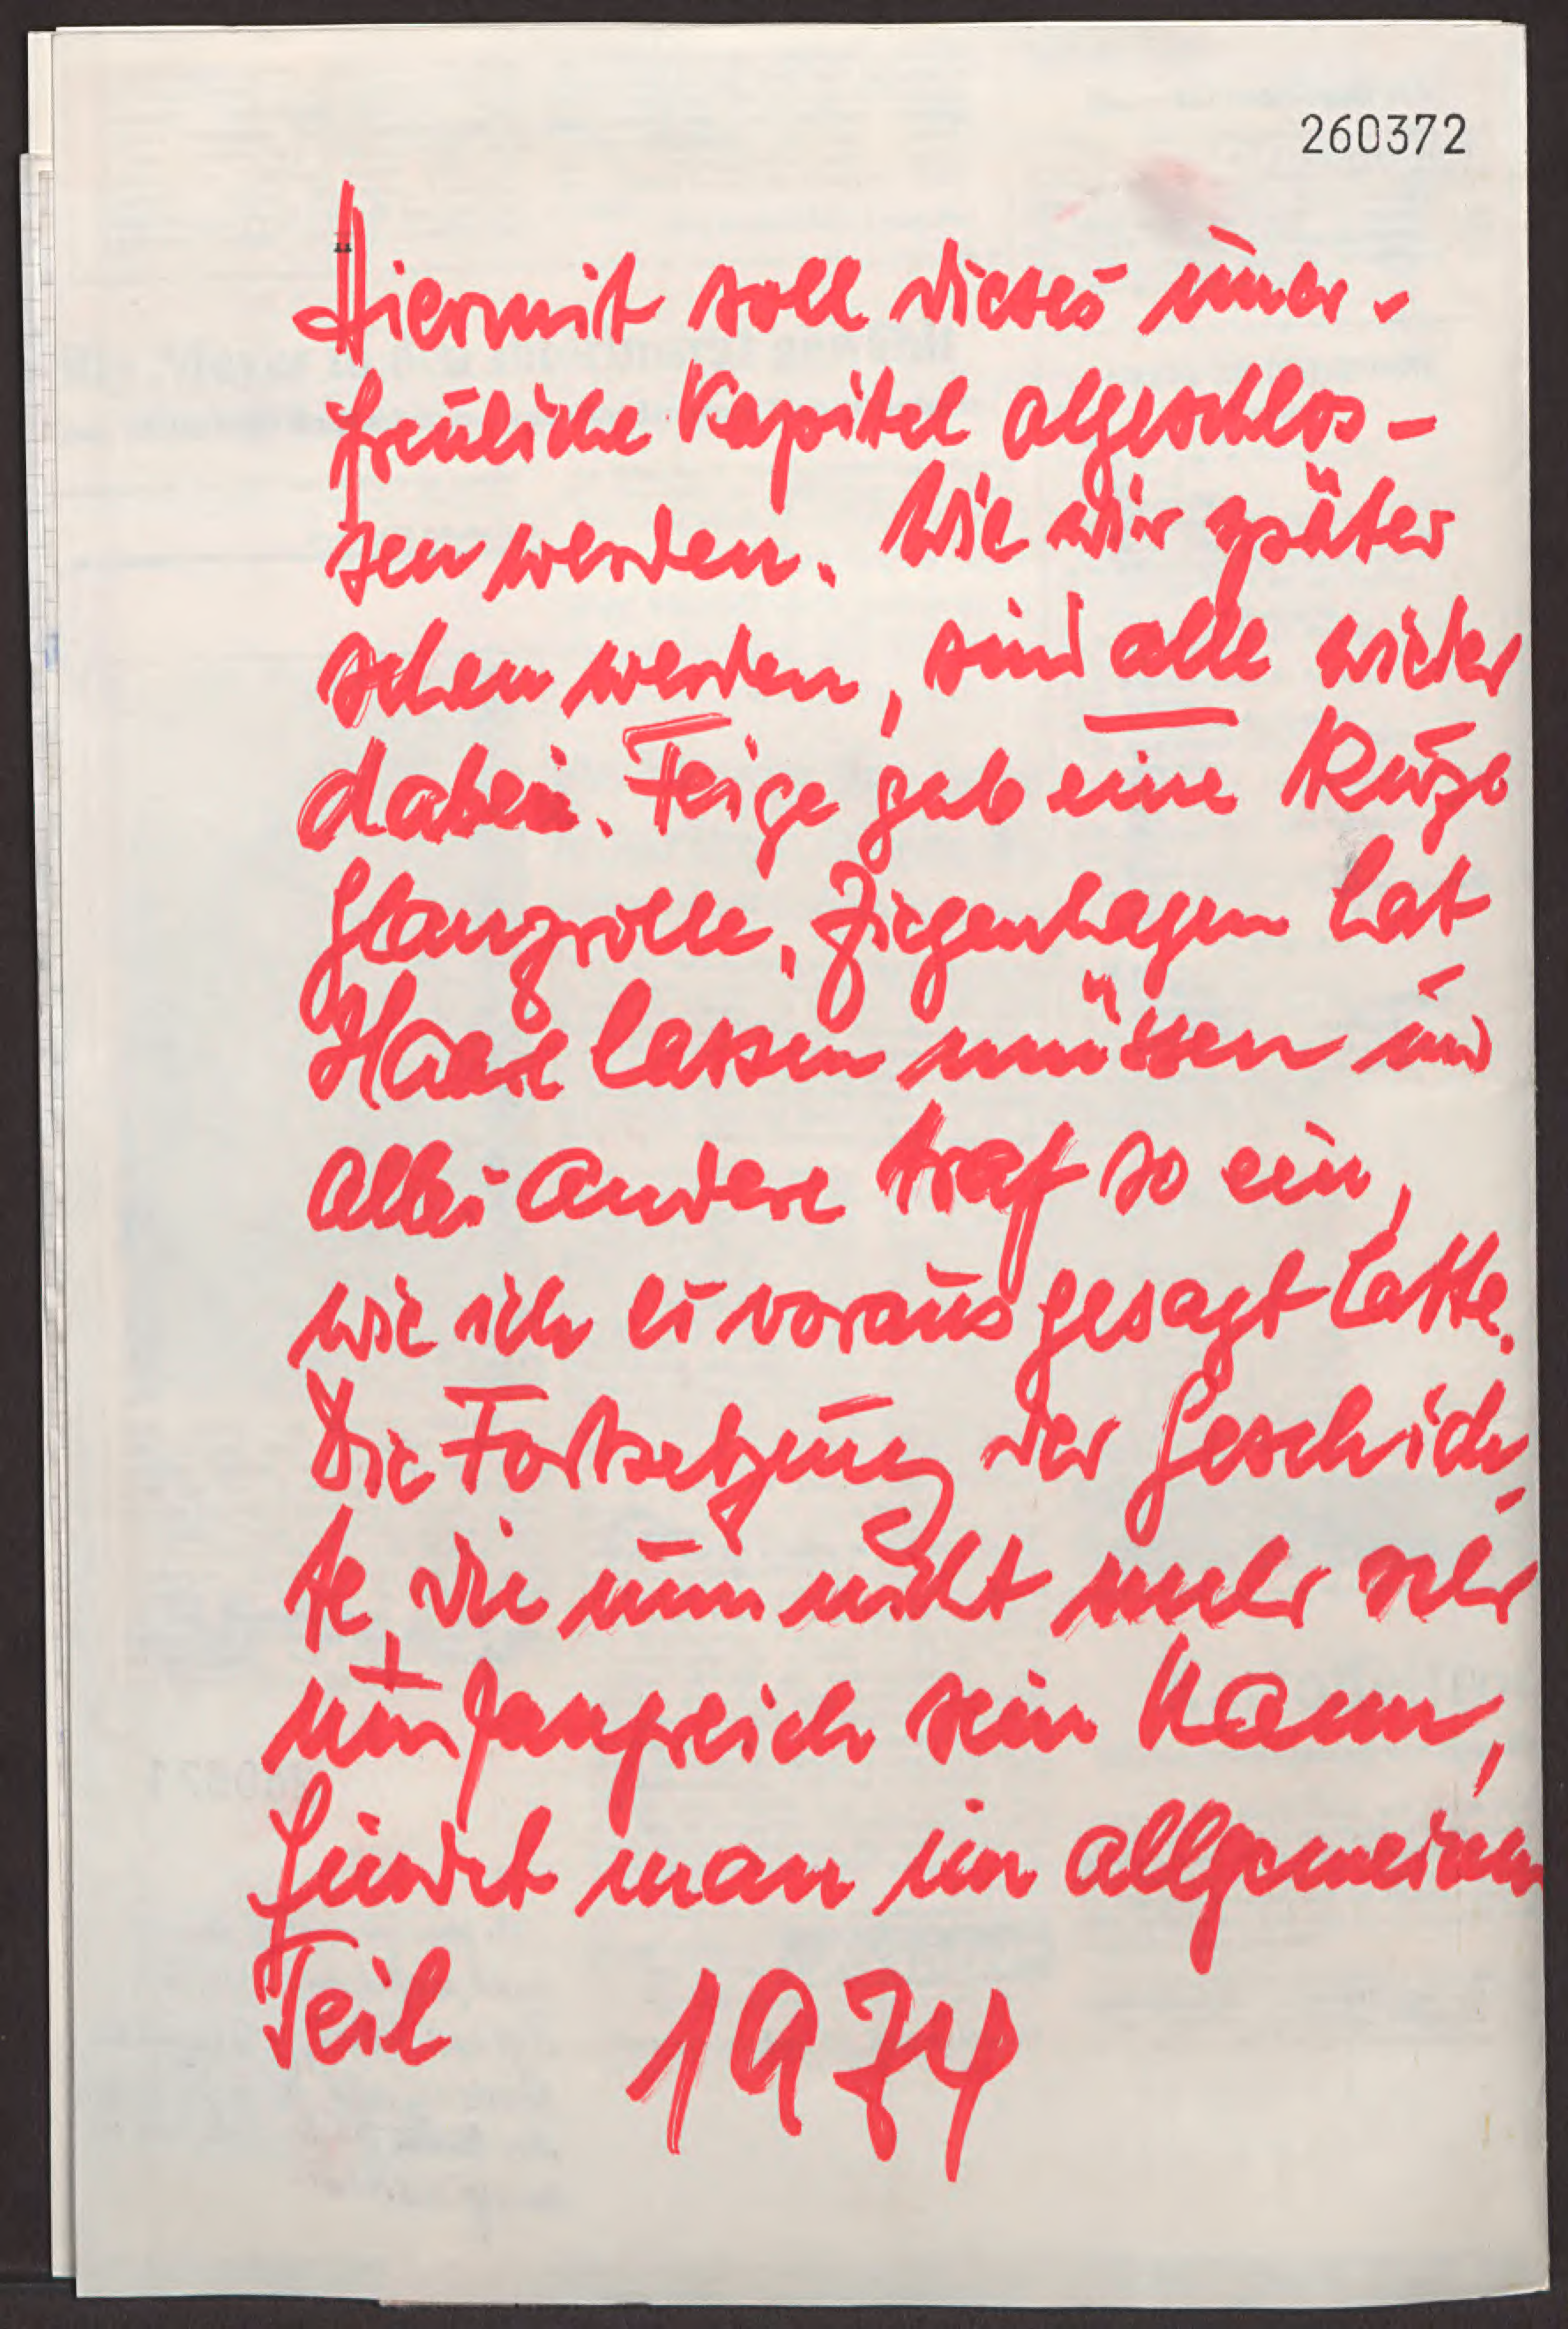 260372
Hiermit soll dieses uner-
freuliche Kapitel abgeschlos-
sen werden. Wie wir später
sehen werden, sind alle wieder
dabei. Feige gab eine kurze
Glanzrolle, Ziegenhagen hat
Haare lassen müssen und
alles andere traf so ein,
wie ich es voraus gesagt hatte.
Die Fortsetzung der Geschich
te, die nun nicht mehr sehr
umfangreich sein kann,
findet man im allgemeinen
Teil 1974